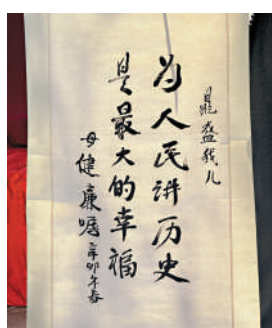 盛我儿
为人民讲历史
是最大的幸福
母健廉嘱 辛卯年春